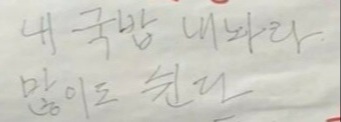 내 국밥 내놔라
많이도 쉰다